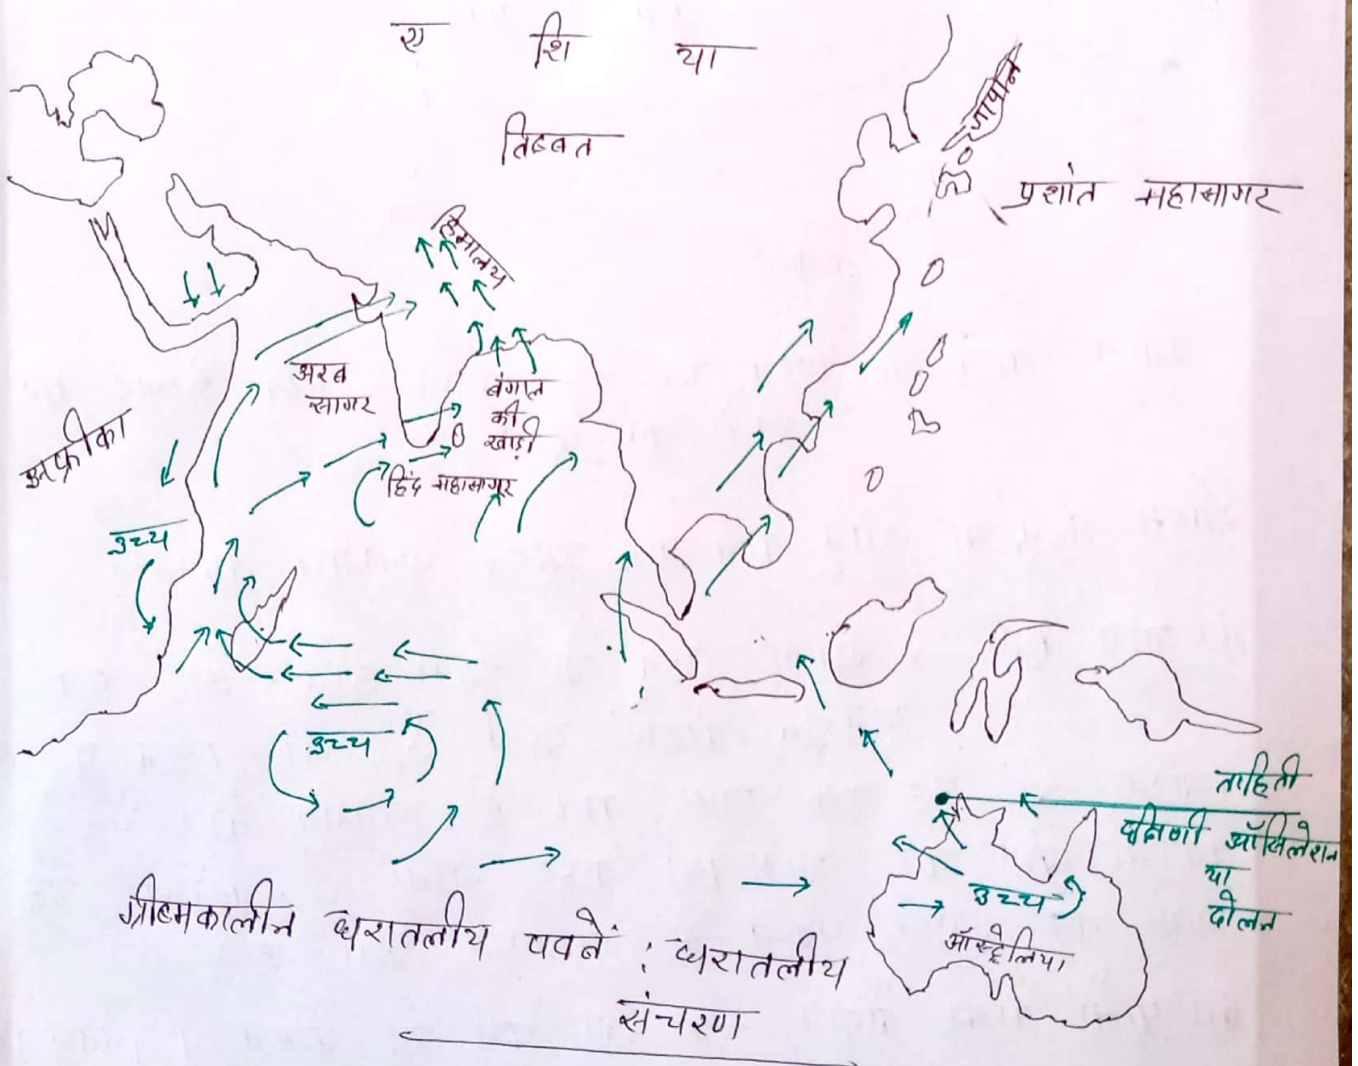 ए शि या
जापान
तिब्बत
प्रशांत महासागर
हिमालय
अरब
सागर
बंगाल
की
खाड़ी
अफ्रीका
हिंद महासागर
उच्च
उच्च
ताहिती
दक्षिणी ऑसिलेशन
या
दोलन
उच्च
ऑस्ट्रेलिया
ग्रीष्मकालीन धरातलीय पवनें : धरातलीय
संचरण